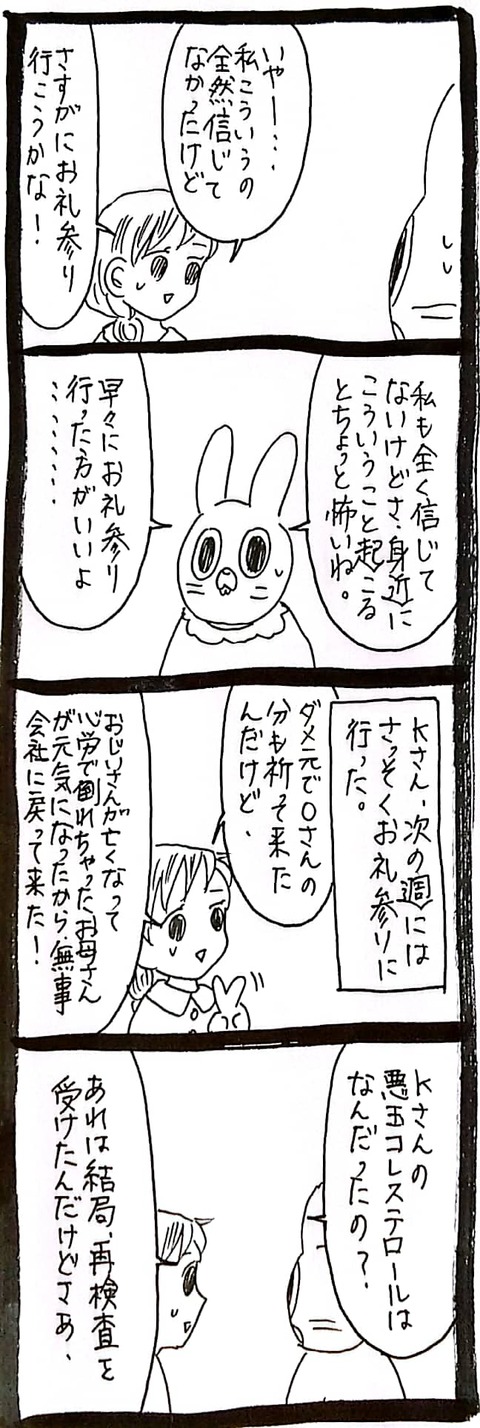 いやー…
私こういうの
全然信じて
なかったけど
さすがにお礼参り
行こうかな！
私も全く信じて
ないけどさ、身近に
こういうこと起こる
とちょっと怖いね。
早々にお礼参り
行った方がいいよ
………
Kさん、次の週には
さっそくお礼参りに
行った。
ダメ元でOさんの
分も祈って来た
んだけど、
おじいさんが亡くなって
心労で倒れちゃったお母さん
が元気になったから無事
会社に戻って来た！
Kさんの
悪玉コレステロールは
なんだったの？
あれは結局、再検査を
受けたんだけどさあ、